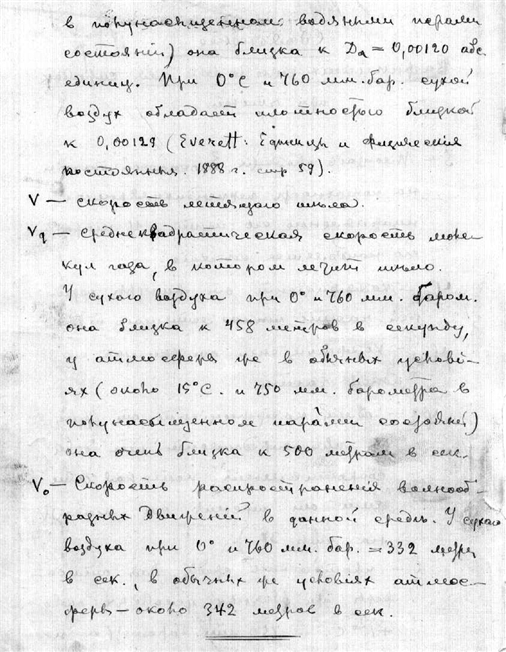 в полунасыщенном водяными парами
состоянiи) она близка к Da = 0,00120 абс.
единиц. При 0°С и 760 мм. бар. сухой
воздух обладает плотностью близкой
к 0,00129 (Everett: Единицы и физическiя
постоянныя. 1888 г. стр 59).
V — скорость летящаго
Vq — среднеквадратическая скорость моле-
кул газа, в котором летит
У сухого воздуха при 0° и 760 мм. баром.
она близка к 458 метров в секунду,
у атмосферы же в обычных условi-
ях (около 15°С. и 750 мм. барометра в
полунасыщенном парами состоянiи)
она очень близка к 500 метрам в сек.
Vo — Скорость распространенiя волнооб-
разных движенiй в данной среде. У сухого
воздуха при 0° и 760 мм. бар. = 332 метра
в сек., в обычных же условiях атмос-
феры — около 342 метров в сек.